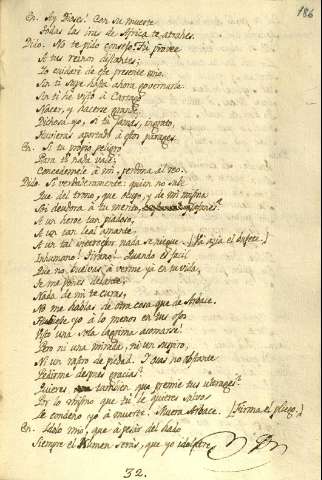 186
En. Ay Dioses! Con su muerte
Todas las iras de Africa te atrahes.
Dido. No te pido consejo: Tú provee
A tus reinos distantes;
Yo cuidaré de este presente mio.
Sin ti supe hasta ahora governarle.
Sin ti he visto à Cartago
Nacer, y hacerse grande.
Dichosa yo, si tu jamás, ingrato,
Huvieras aportado à estos parages.
En. Si tu proprio peligro
Para ti nada vale;
Concedemele à mi, perdona al reo.
Dido. Si verdaderamente: quien no sabe
Que del trono, que ocupo, y de mi misma
Soi deudora à tu merito,
A un heroe tan piadoso,
A un tan leal amante,
A un tal intercesor nada se niegue. (Va azia el bufete.)
Inhumano! Tirano! Quando es facil
Que no buelvas à verme ya en tu vida,
Te me pones delante;
Nada de mi te curas,
No me hablas de otra cosa que de Arbace.
yo à lo menos en tus ojos
Visto una sola lagrima asomarse!
Pero ni una mirada, ni un suspiro,
Ni un rastro de piedad. Y osas no obstante
Pedirme despues gracias?
Quieres tambien que premie tus ultrages?
Por lo mismo que tu le quieres salvo
Le condeno yo à muerte! Muera Arbace. (Firma el pliego.)
En. Idolo mio, que à pesar del hado
Siempre el Numen serás, que yo idolatre,
32.